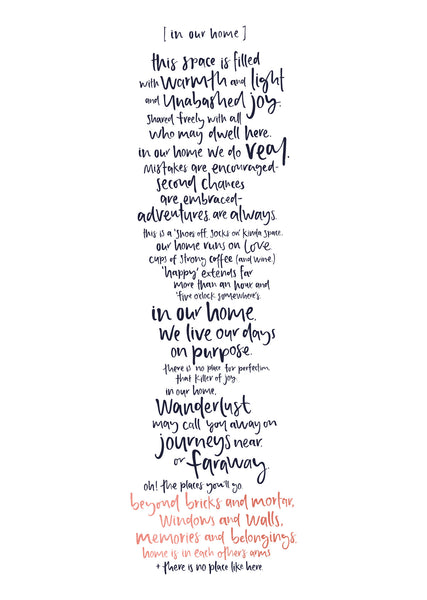 [ in our home ]
this space is filled
with warmth and light
and unabashed joy.
shared freely with all
who may dwell here.
in our home we do real.
mistakes are encouraged-
second chances
are embraced-
adventures, are always.
this is a 'shoes off, socks on' kinda space.
our home runs on love
cups of strong coffee (and wine)
'happy' extends far
more than an hour and
'five o'clock somewhere's.
in our home,
we live our days
on purpose.
there is no place for perfection,
that killer of joy.
in our home,
Wanderlust
may call you away on
journeys near,
or faraway.
oh! the places you'll go.
beyond bricks and mortar,
windows and walls,
memories and belongings,
home is in each other's arms
+ there is no place like here.